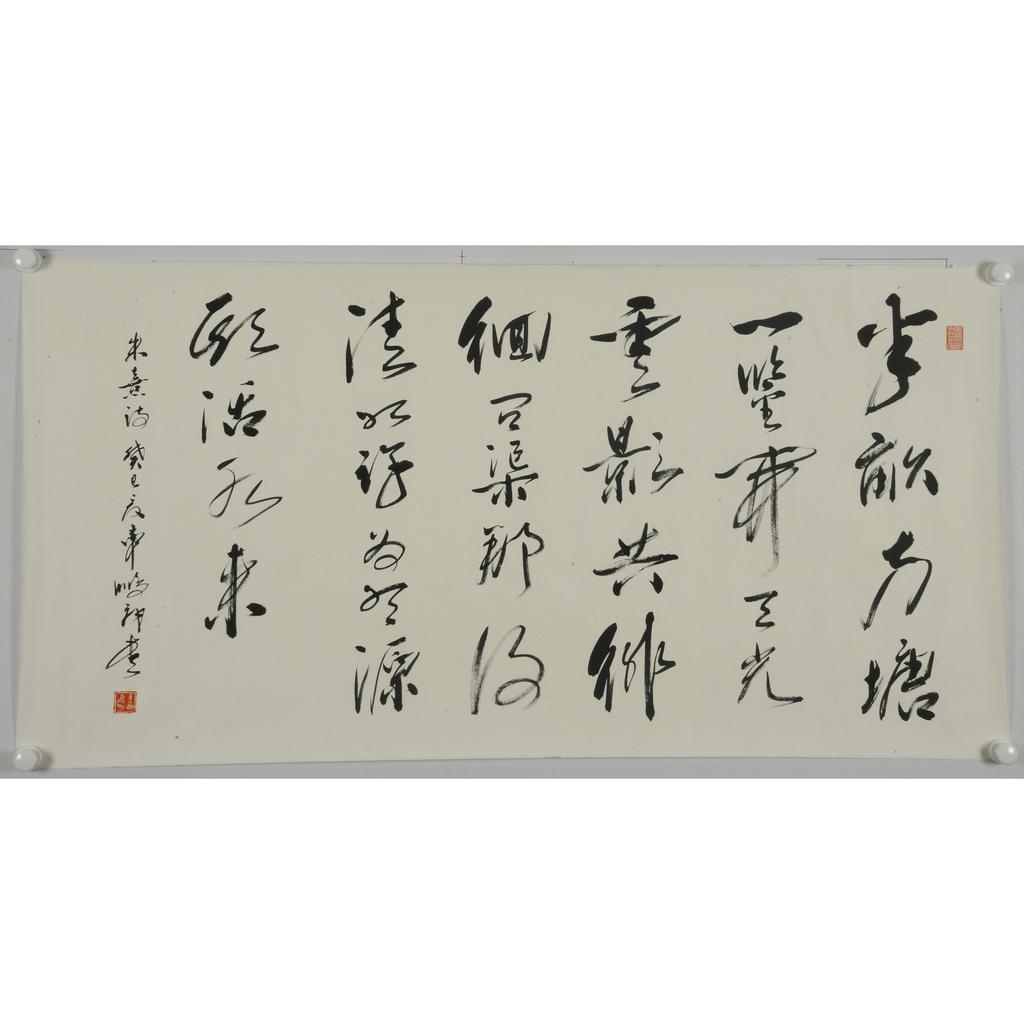 半畝方塘
一鑒開天光
雲影共徘
徊問渠那得
清如許為有源
頭活水來
朱熹詩 癸巳夏車鵬書